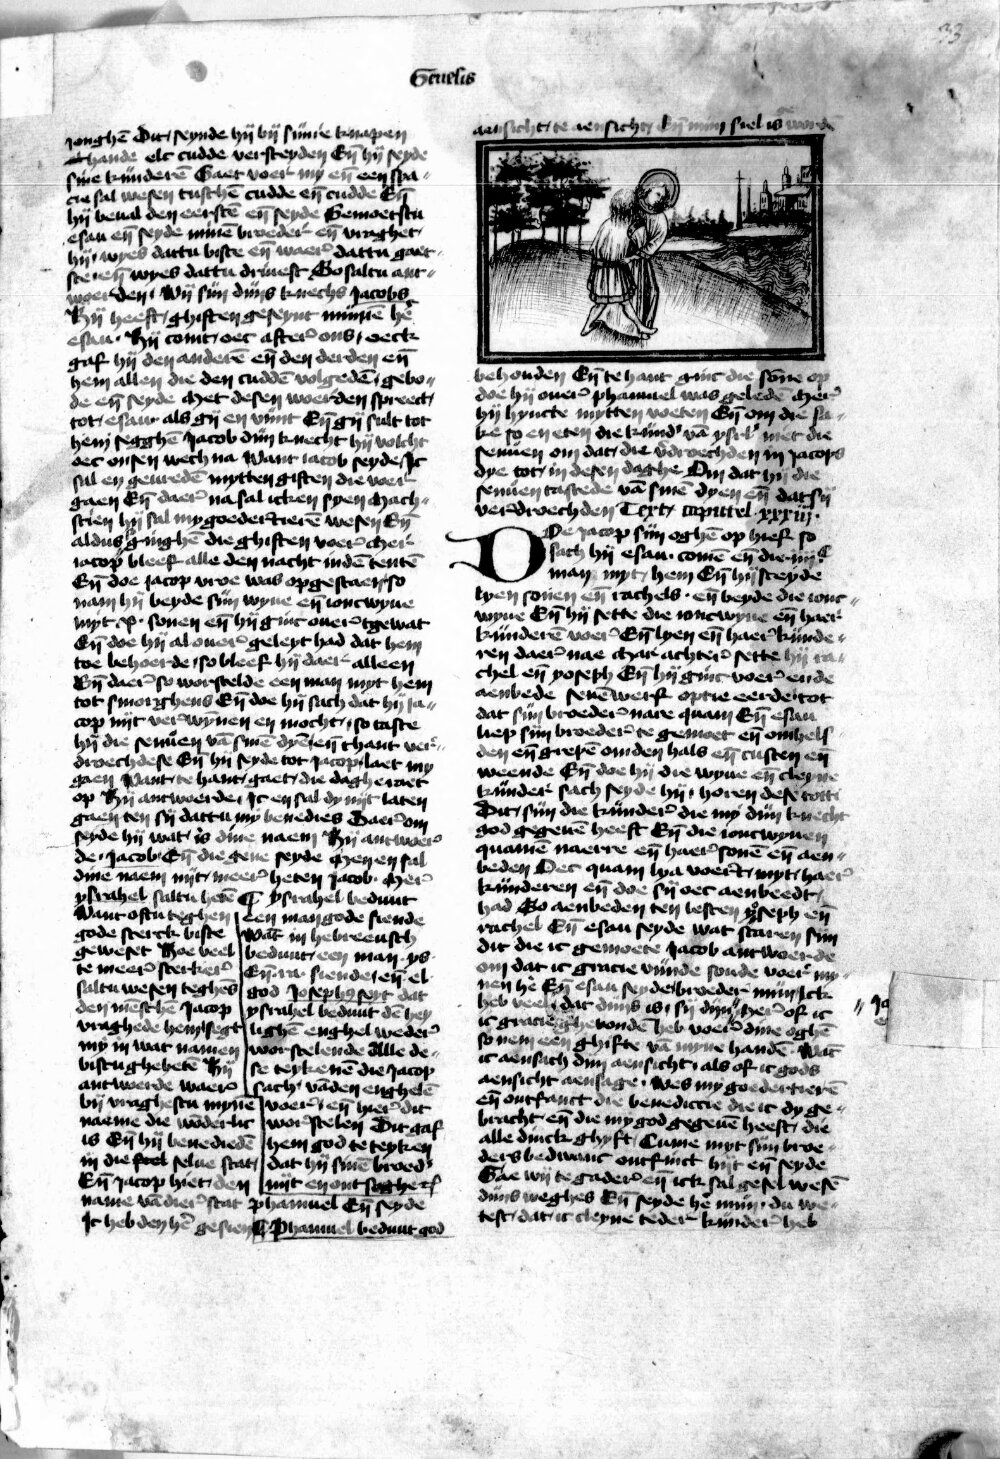 33
Genesis
jonghē Dit seynde hij bij sinē knapen
hande elc cudde versceyden Eñ hij seyde
sinē kinderē Gaet voer my eñ een spa-
cie sal wesen tusschē cudde eñ cudde Eñ
hij beual den eerstē eñ seyde Gemoetstu
esau eñ seyde minē broeder eñ vraghet
hij wyes dattu biste eñ waer dattu gaet-
ste eñ wyes dattu driuest So saltu ant-
woerden Wij sijn dijns knechs Jacobs
Hij heeft ghiften geseynt minē hē
esau Hij comt oec after ons oeck
gaf hij den anderē eñ den derden eñ
hem allen die den cuddē volgedē gebo-
de eñ seyde Met desen woerden spreect
tot esau als gij en vint Eñ gij sult tot
hem segghē Jacob dijn knecht hij volcht
oec onsen wech na Want iacob seyde Jc
sal en geuredē mytten giften die voer
gaen Eñ daer na sal icken syen Mach-
scien hij sal my goedertierē wesen Eñ
aldus ginghē die ghiften voer Mer
iacop bleef alle den nacht indē tentē
Eñ doe jacop vroe was opgestaen so
nam hij beyde sijn wyue eñ ioncwyue
myt xi sonen eñ hij ginc ouer tgewat
Eñ doe hij al ouer geleyt had dat hem
toe behoerde so bleef hij daer alleen
Eñ daer so worstelde een man myt hem
tot smorghens Eñ doe hij sach dat hij ja-
cop nijt verwynen en mocht so taste
hij die senuen vā sinē dyē eñ thant ver-
droechdese Eñ hij seyde tot Jacop laet my
gaen Want te hant gaet die daghe raet
op Hij antwoerde Jc en sal dy nijt laten
gaen ten sij dattu my benedies Daer om
seyde hij wat is dine naem Hij antwoer
de Jacob Eñ die gene seyde Men en sal
dine naem nijt meer heten Jacob Mer
ysrahel saltu hetē
Want oftu teghen
gode sterck biste
geweset Hoe veel
te meer sterker
saltu wesen teghēs
den mēschē Jacop
vraghede hem segt
my in wat namen
bistu ghehetē Hij
antwerde waer
bij vraghestu mynē
naeme die wōderlic
is Eñ hij benediedē
in die selue stat
Eñ Jacop hiet den
name vā dier stat phanuel Eñ seyde
Jc heb den hē gesien
ysrahel beduut
een man gode siende
Wāt in hebreeusch
beduut een man ys
Eñ ra siende eñ el
god Josephus seyt dat
ysrahel beduut dē hey
lighē enghel weder
worstelende Alle de-
se teykenē die jacop
sach vāden enghelē
voer eñ hier dit
worstelen Dit gaf
hem god te teyken
dat hij sinē broed
nijt en ontsaghe
Phanuel beduut god
aensicht te aensicht Eñ mijn siel is worde
behouden Eñ te hant ginc die sōne op
doe hij ouer phanuel was geledē Mer
hij hyncte mytten voeten Eñ om die sa-
ke so en eten die kind vā ysrl niet die
senuen om dat die v̄droechden in jacops
dye tot in desen daghe Om dat hij die
senuen tastede vā sinē dyen eñ dat sij
verdroechden Text capittel xxxiij
DOe jacop sijn oghē op hief so
sach hij esau comē eñ die iiijC
man myt hem Eñ hij sceyde
lyen sonen eñ rachels eñ beyde die ionc-
wyue Eñ hij sette die ioncwyue eñ haer
kinderē voer Eñ lyen eñ haer kinde-
ren daer nae Mar achter sette hij ra-
chel eñ yoseph Eñ hij ginc voer ende
aenbede seuēwerf optie eerde tot
dat sijn broeder nare quam Eñ esau
liep sijn broeder te gemoet eñ omhels
den eñ grepē om den hals eñ custen eñ
weende Eñ doe hij die wyue eñ cleyne
kinder sach seyde hij horen dese totti
Dit sijn die kinder die my dijn knecht
god gegeuē heeft Eñ die ioncwyuen
quamē naerre eñ haer sonē eñ aen-
beden Oec quam lya voert myt haer
kinderen eñ doe sij oec aenbeedt
had So aenbeden ten lesten yoseph eñ
rachel Eñ esau seyde wat scaren sijn
dit die ic gemoete Jacob antwoerde
om dat ic gracie vinde soude voer my-
nen hē Eñ esau seyde broeder mijn Ick
heb veel dat dijns is sij dijn Mer of ic
ic gracie gheuondē heb voer dine oghē
so nem een ghifte vā myne handē Wāt
ic aensach dijn aensicht als of ic gods
aensicht aensage Wes my goedertierē
eñ ontfanct die benedictie die ic dy ge-
bracht eñ die my god gegeuē heeft die
alle dinck ghyft Cume myt sijn broe-
ders bedwanc ontfinct hijt eñ seyde
Gae wij tegader eñ ick sal gesel wesē
dijns weghes Eñ seyde hē mijn du we-
test dat ic cleyne teder kinder heb